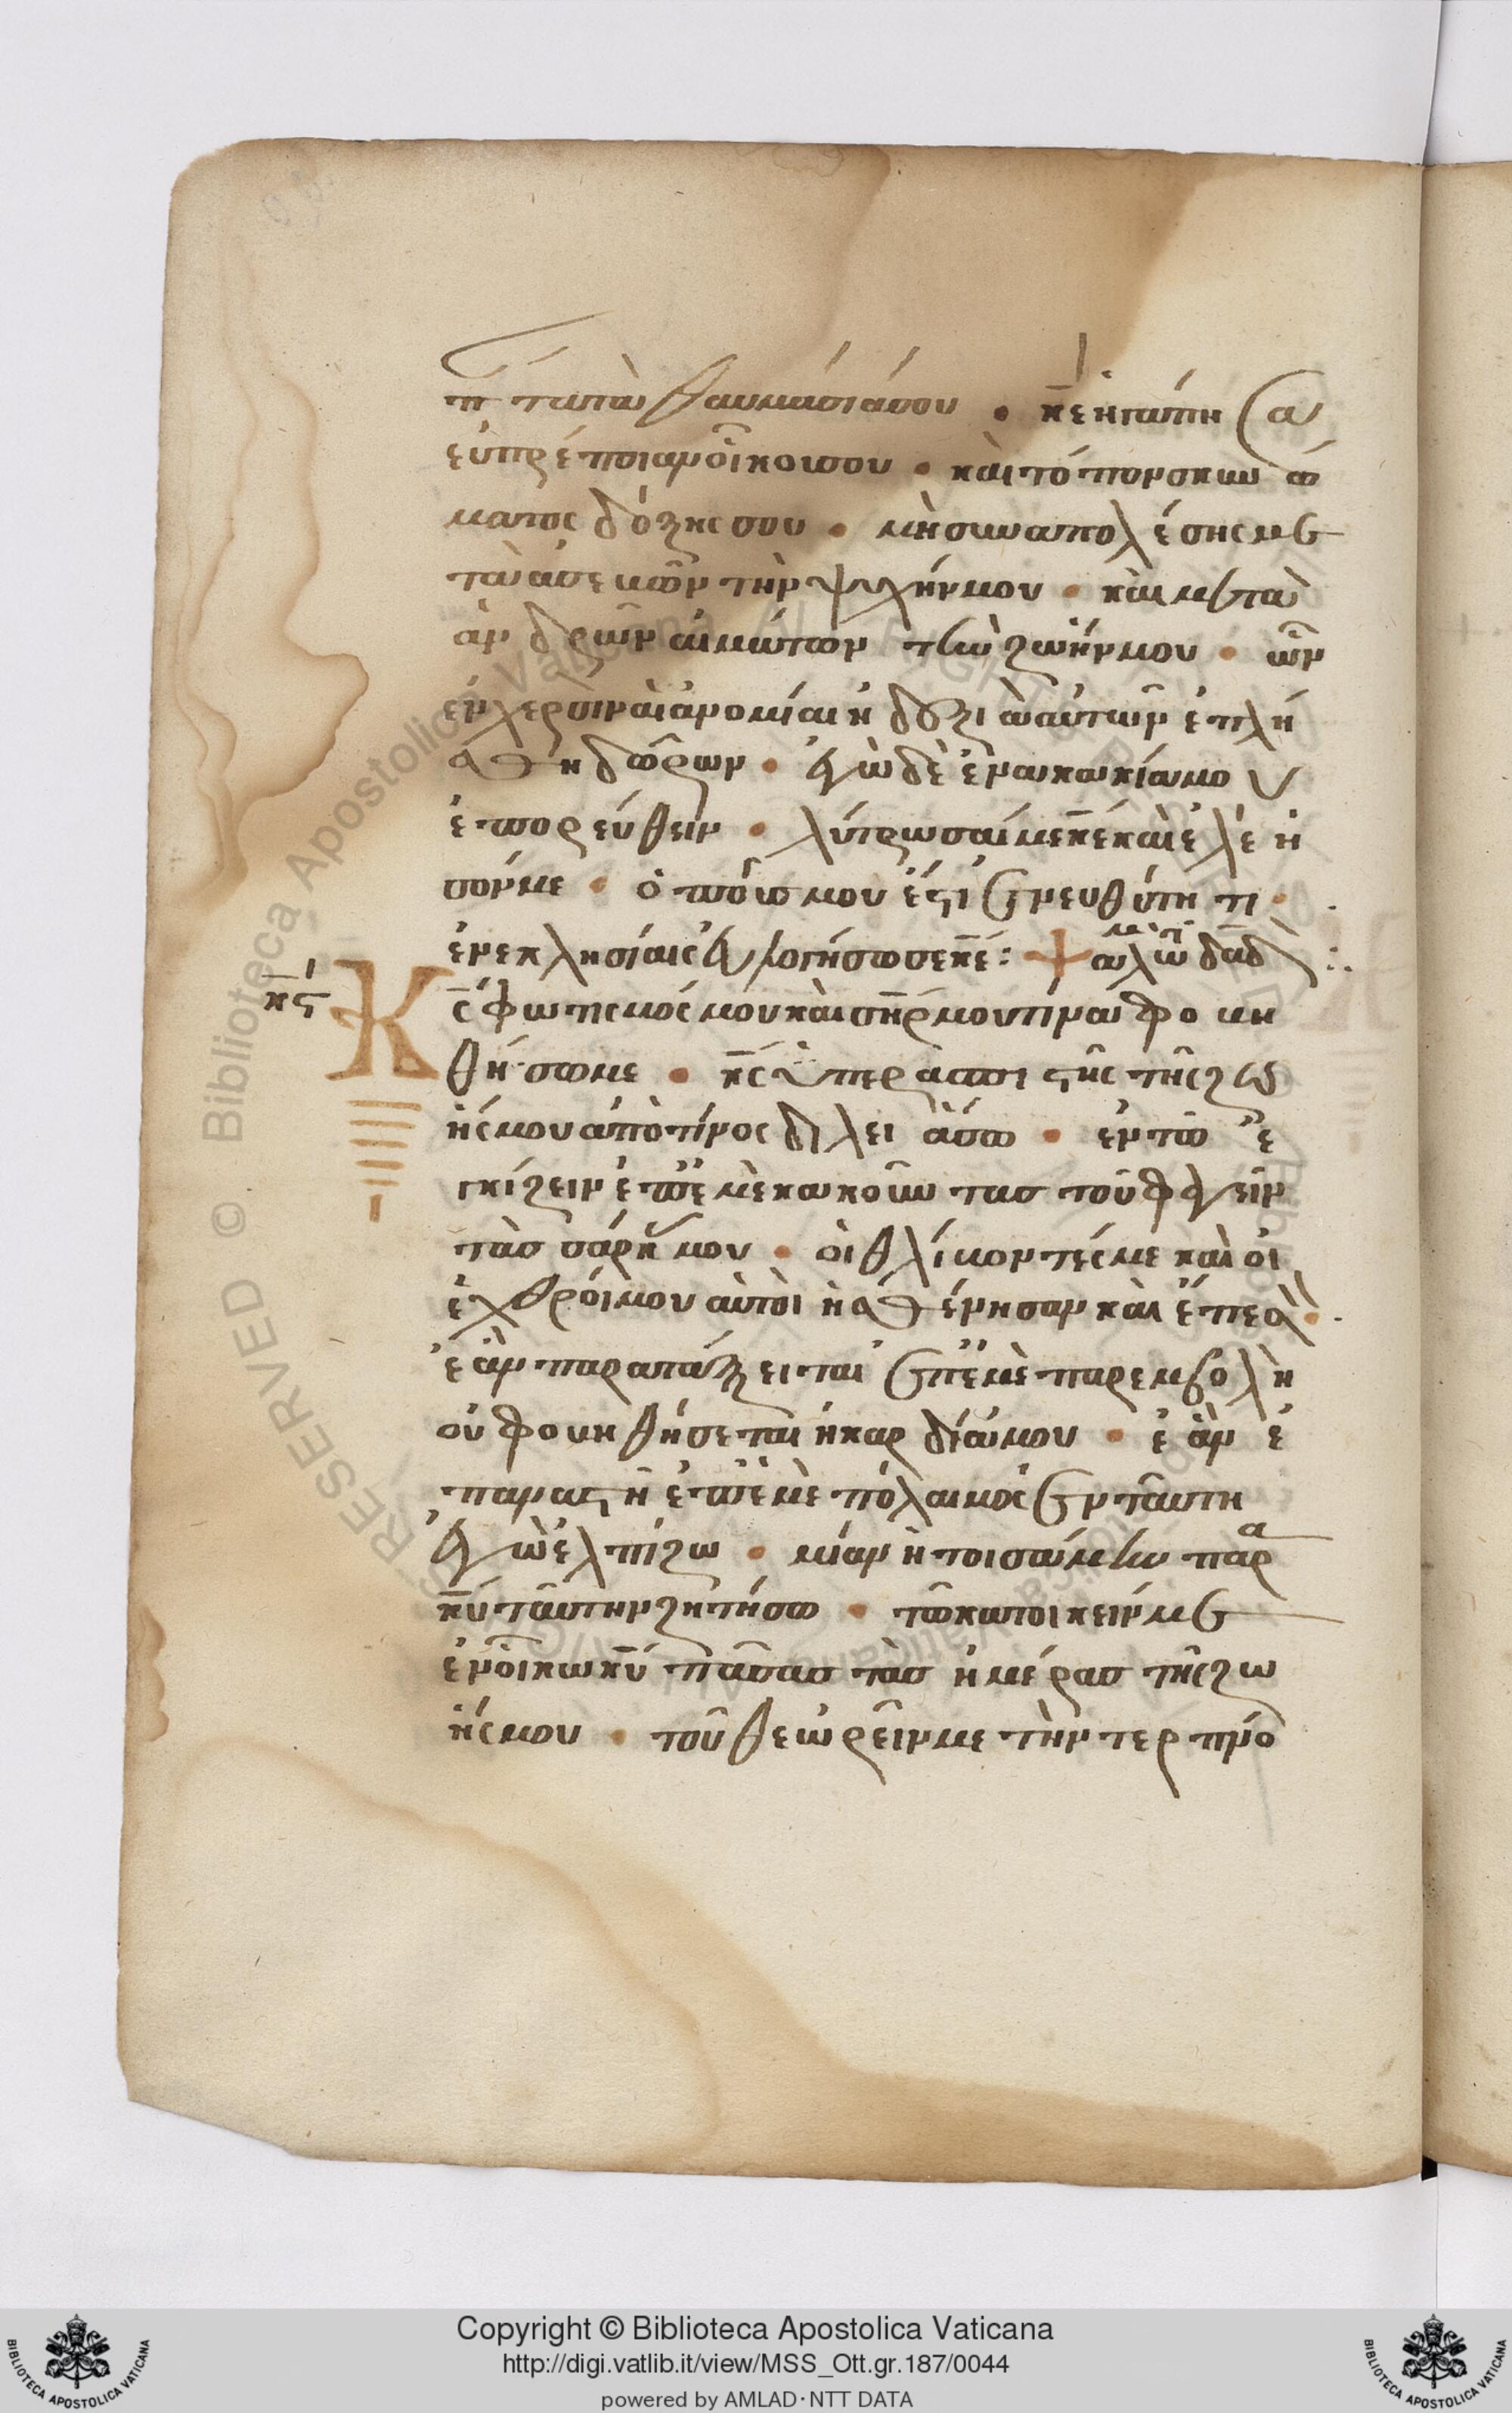 τα πάντα θαυμάσιά σου · κ̅ε ἠγάπησα
εὐπρέπειαν οἴκου σου · καὶ τόπον σκηνώ
ματος δόξης σου · μὴ συναπολέσης με
τὰ ἀσεβῶν τὴν ψυχήν μου · καὶ μετὰ
ἀνδρῶν αἱμάτων τὴν ζωήν μου · ὧν
ἐν χερσὶν αἱ ἀνομίαι ἡ δεξιὰ αὐτῶν ἐπλή
σθη δώρων · ἐγὼ δὲ ἐν ἀκακία μου
ἐπορεύθην · λύτρωσαί με κ̅ε καὶ ἐλέη
σόν με · ὁ ποῦς μου ἔστι ἐν εὐθύτητι ·
ἐν ἐκκλησίαις εὐλογήσω σε κ̅ε : ψαλμὸς τῷ δα̅δ
κ̅ς
Κ̅ς φωτισμός μου καὶ σ̅ηρ μου τίνα φοβη
θήσωμε · κ̅ς ὑπερασπιστὴς τῆς ζω
ῆς μου ἀπὸ τίνος δειλειάσω · ἐν τῶ ἐ
γκίζειν ἐπ' ἐμὲ κακοῦντας τοῦ φαγεῖν
τὰς σάρκ μου · οἱ θλίβοντές με καὶ οἱ
ἐχθροί μου αὐτοὶ ἠσθένησαν καὶ ἔπεσ ·
ἐὰν παρατάξειται ἐπ' ἐμὲ παρεμβολὴ
οὐ φοβηθήσεται ἡ καρδία μου · ἐὰν ἐ
παναστῆ ἐπ' ἐμὲ πόλαιμος ἐν ταύτη
ἐγὼ ἐλπίζω · μίαν ἠτοισάμην παρα
κ̅υ ταύτην ζητήσω · τῶ κατοικεῖν με
ἐν οἴκω κ̅υ πάσας τὰς ἡμέρας τῆς ζω
ῆς μου · τοῦ θεωρεῖν με τὴν τερπνό
Copyright © Biblioteca Apostolica Vaticana
http://digi.vatlib.it/view/MSS_Ott.gr.187/0044
powered by AMLAD·NTT DATA